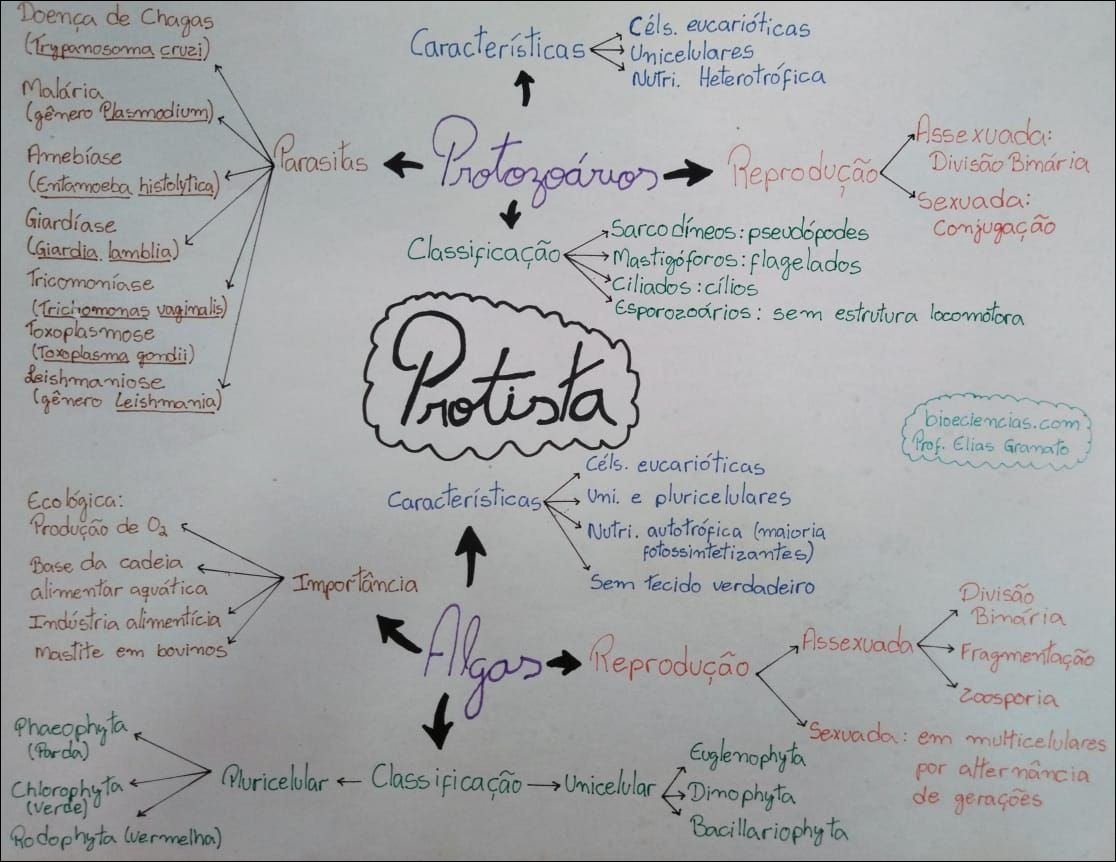 Doença de Chagas
(Trypanosoma cruzi)
Malária
(gênero Plasmodium)
Amebíase
(Entamoeba histolytica)
Giardíase
(Giardia lamblia)
Tricomoníase
(Trichomonas vaginalis)
Toxoplasmose
(Toxoplasma gondii)
Leishmaniose
(gênero Leishmania)
Parasitas
Características
Céls. eucarióticas
Unicelulares
Nutri. Heterotrófica
Protozoários
Reprodução
Assexuada:
Divisão Binária
Sexuada:
Conjugação
Classificação
Sarcodíneos: pseudópodes
Mastigóforos: flagelados
Ciliados: cílios
Esporozoários: sem estrutura locomotora
Protista
bioeciencias.com
Prof. Elias Gramato
Características
Céls. eucarióticas
Uni. e pluricelulares
Nutri. autotrófica (maioria
fotossintetizantes)
Sem tecido verdadeiro
Ecológica:
Produção de O₂
Base da cadeia
alimentar aquática
Indústria alimentícia
Mastite em bovinos
Importância
Algas
Reprodução
Assexuada
Divisão
Binária
Fragmentação
Zoosporia
Sexuada: em multicelulares
por alternância
de gerações
Phaeophyta
(Parda)
Chlorophyta
(verde)
Rodophyta (vermelha)
Pluricelular
Classificação
Unicelular
Euglenophyta
Dimophyta
Bacillariophyta